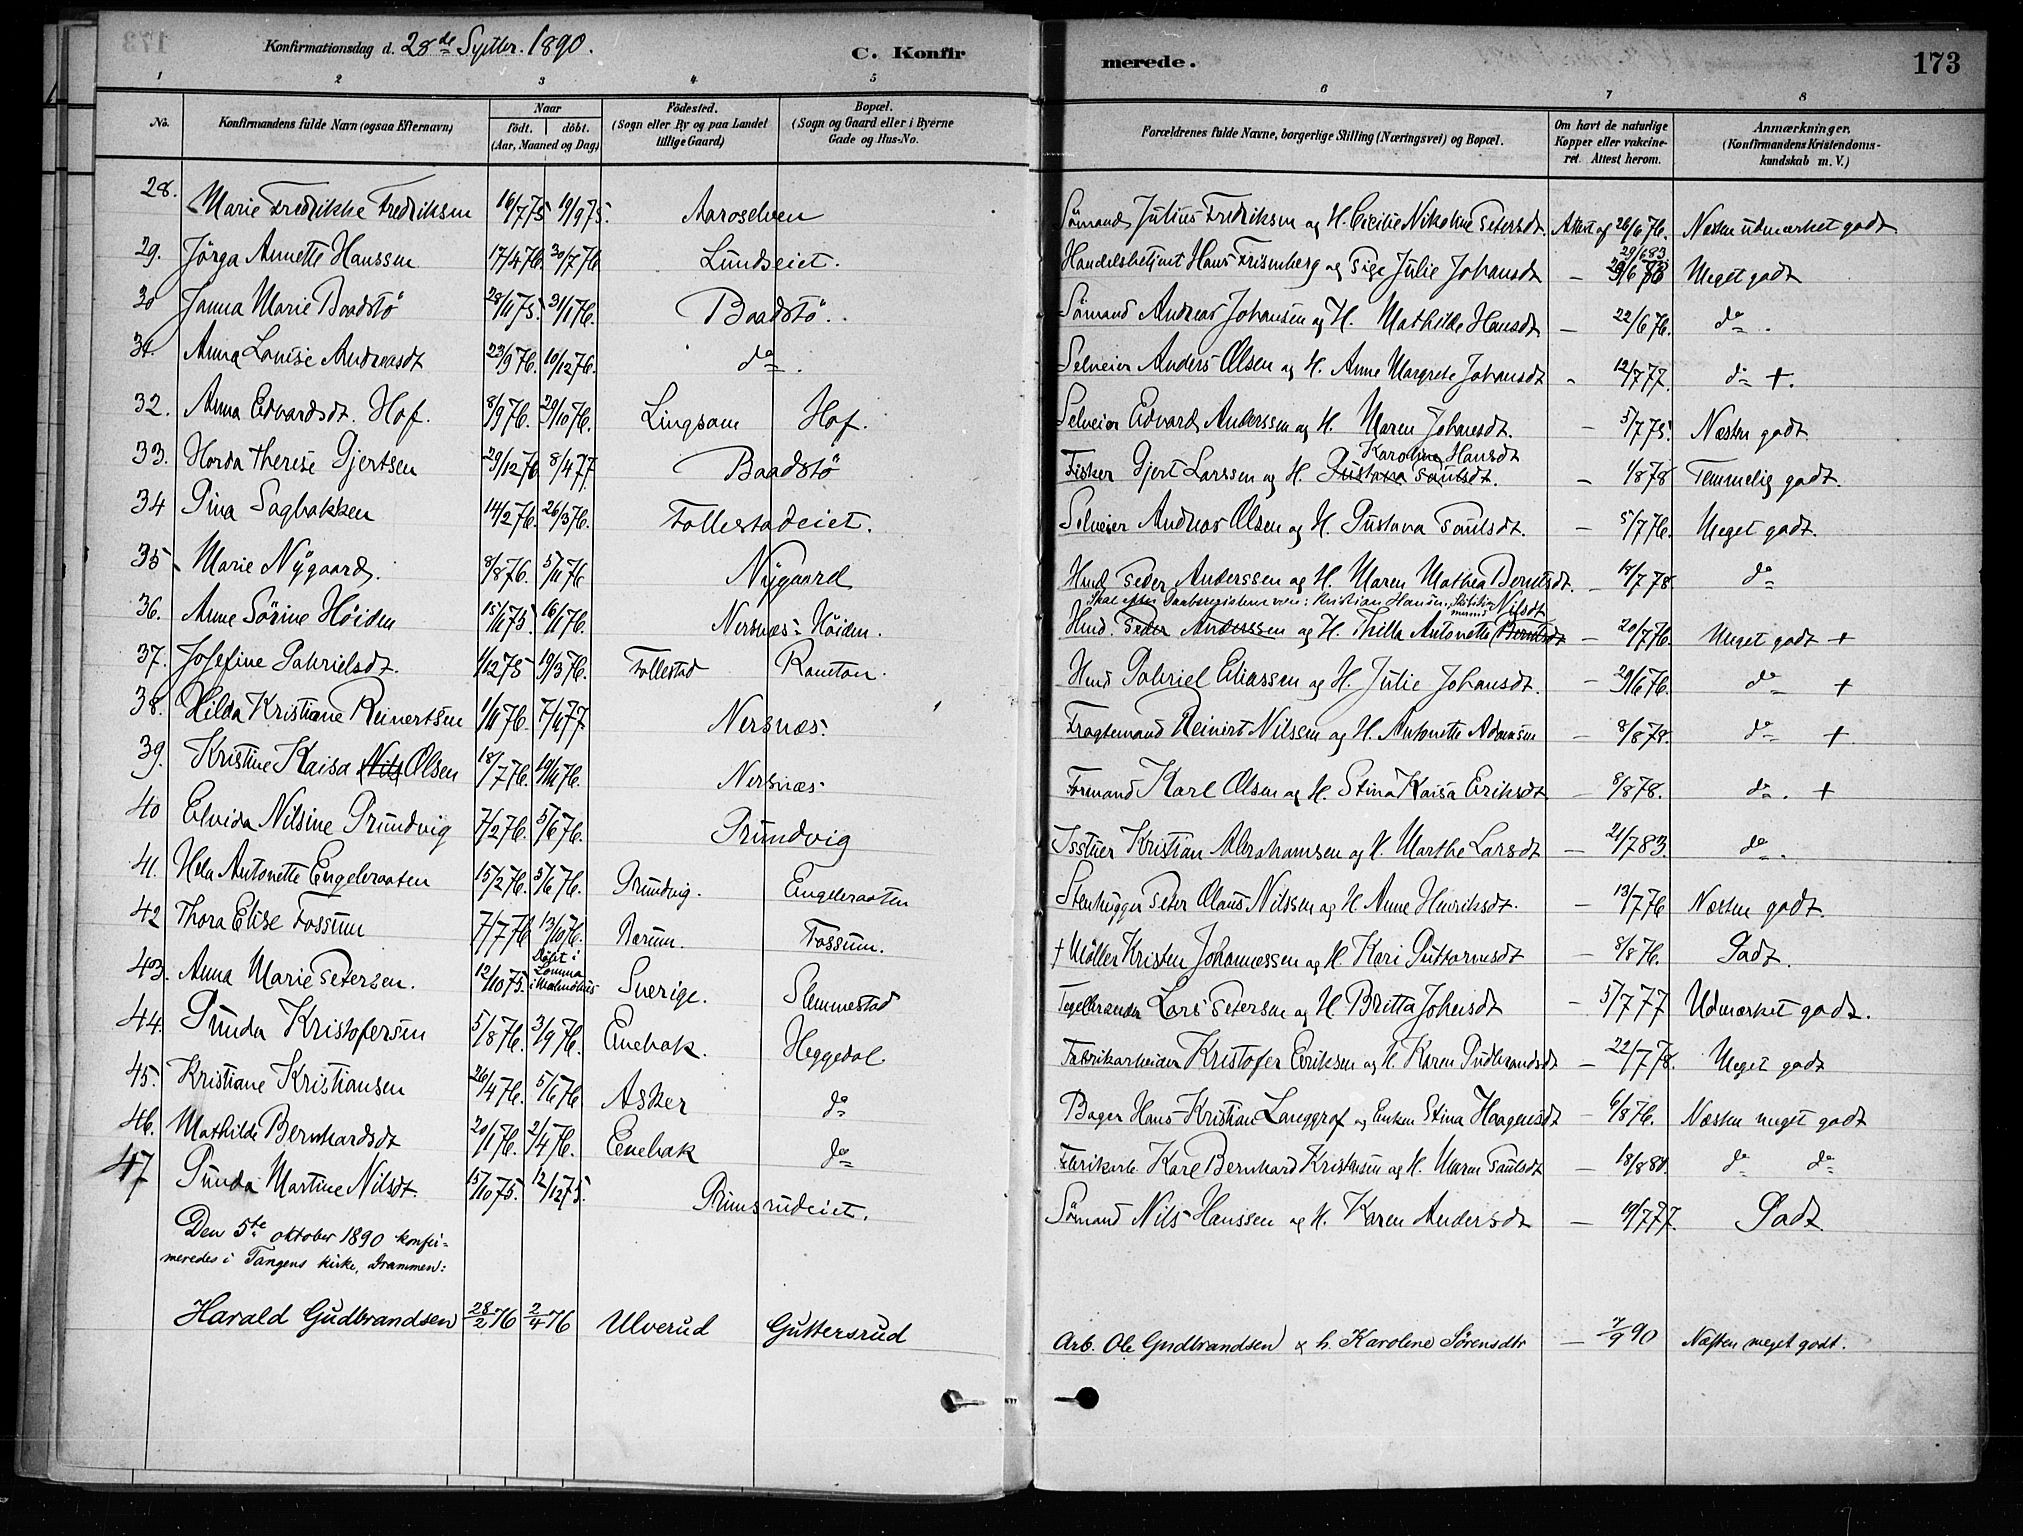 173
Konfirmationsdag d. 28de Septbr. 1890.
C. Konfirmerede.
1 2 3 4 5 6 7 8
No. Konfirmandens fulde Navn (ogsaa Efternavn) Naar födt. döbt. (Aar, Maaned og Dag) Födested. (Sogn eller By og paa Landet tillige Gaard) Bopæl. (Sogn og Gaard eller i Byerne Gade og Hus-No. Forældrenes fulde Navne, borgerlige Stilling (Næringsvei) og Bopæl. Om havt de naturlige Kopper eller vakcineret. Attest herom. Anmærkninger. (Konfirmandens Kristendomskundskab m. V.)
28. Marie Fredrikke Fredriksen 16/7 75 19/9 75. Aaroselven Sömand Julius Fredriksen og H. Cicilie Nikoline Petersdt. Attest af 26/6 76. Næsten udmærket godt
29. Jörga Annette Hanssen 17/4 76. 30/7 76 Lundseiet. Handelsbetjent Hans Frisenberg og Pige Julie Johansdt — 29/6 83 Meget godt
30 Janna Marie Baadstö 28/11 75. 31/1 76. Baadstö. Sömand Andreas Johansen og H. Mathilde Hansdt — 22/6 76. do.
31. Anna Lovise Andersdt 23/9 76. 10/12 76. do. Selveier Anders Olsen og H. Anne Margrete Johansdt - 12/7 77. do +.
32. Anna Edvardsdt. Hof. 8/9 76. 29/10 76. Lingsom Hof. Selveier Edvard Anderssen og H. Maren Johansdt. — 5/7 75. Næsten godt
33. Horda Therese Gjertsen 29/12 76 8/4 77. Baadstö Fisker Gjert Larssen og H. Gustava Paulsdt. Karoline Hansdt — 1/8 78 Temmelig godt.
34 Gina Sagbakken 14/2 76. 26/3 76. Follestadeiet. Selveier Andreas Olsen og H. Gustava Paulsdt. — 5/7 76. Meget godt.
35 Marie Nygaard. 8/8 76. 5/11 76 Nygaard Hmd Peder Anderssen og H. Maren Mathea Berntsdt. — 18/7 78. do
Skal efter Daabsregisteret være: Kristian Hansen, Nilsdt
36. Anne Sörine Höiden 15/11 75. 16/1 76. Nersnæs: Höiden. Hmd. Peder Anderssen og H. Thilla Antonette Berntsdt — 20/7 76. Meget godt +
37. Josefine Gabrielsdt. 1/12 75 19/3 76. Follestad Ramton. Hmd Gabriel Eliassen og H. Julie Johansdt. — 29/6 76. do +
38. Hilda Kristiane Reinertsen 1/11 76. 7/1 77. Nersnæs: Fragtemand Reinert Nilssen og H. Antonette Adamsen — 8/8 78. do +
39. Kristine Kaisa Nils Olsen 18/7 76. 19/11 76. Nersnæs: Formand Karl Olsen og H. Stina Kaisa Eriksdt — 8/8 78. do. +
40 Elvida Nilsine Grundvig 7/2 76. 5/6 76. Grundvig Kristian Abrahamsen og H. Marthe Larsdt — 21/7 83. do.
41. Hela Antonette Engebraaten 15/2 76. 5/6 76. Grundvig. Engebraaten Stenhugger Peter Olaus Nilssen og H Anne Henriksdt. — 13/7 76 Næsten godt.
42 Thora Elise Fossum 7/7 76 13/10 76. Bærum. Fossum. † Möller Kristen Johannessen og H. Kari Guttormsdt — 8/8 76. Godt.
43. Anna Marie Petersen. 12/10 75. Döbt i Lomma i Malmöhus Sverige. Slemmestad Tegelbrænder Lars Petersen og H Britta Johensdt — 5/7 77 Udmærket godt.
44. Gunda Kristofersen 5/8 76. 3/9 76. Enebak. Heggedal. Fabrikarbeider Kristofer Eriksen og H. Karen Gudbrandsdt — 22/7 78. Meget godt
45. Kristiane Kristiansen 26/4 76. 5/6 76 Asker do Bager Hans Kristian Langgrof og Enken Stina Haagensdt — 6/8 76. Næsten meget godt
46. Mathilde Bernhardsdt 20/1 76. 2/4 76. Enebak do Fabrikarb. Karl Bernhard Kristensen og H. Maren Paulsdt — 18/8 81. do do
47 Gunda Martine Nilsdt. 15/10 75. 12/12 75. Grimsrudeiet. Sömand Nils Hanssen og H. Karen Andersdt — 19/7 77. Godt
Den 5te oktober 1890 konfirmeredes i Tangens kirke, Drammen:
Harald Gudbrandsen 28/2 76 2/4 76 Ulverud Guttersrud Arb. Ole Gudbrandsen & h. Karoline Sörensdtr — 7/9 90 Næsten meget godt.